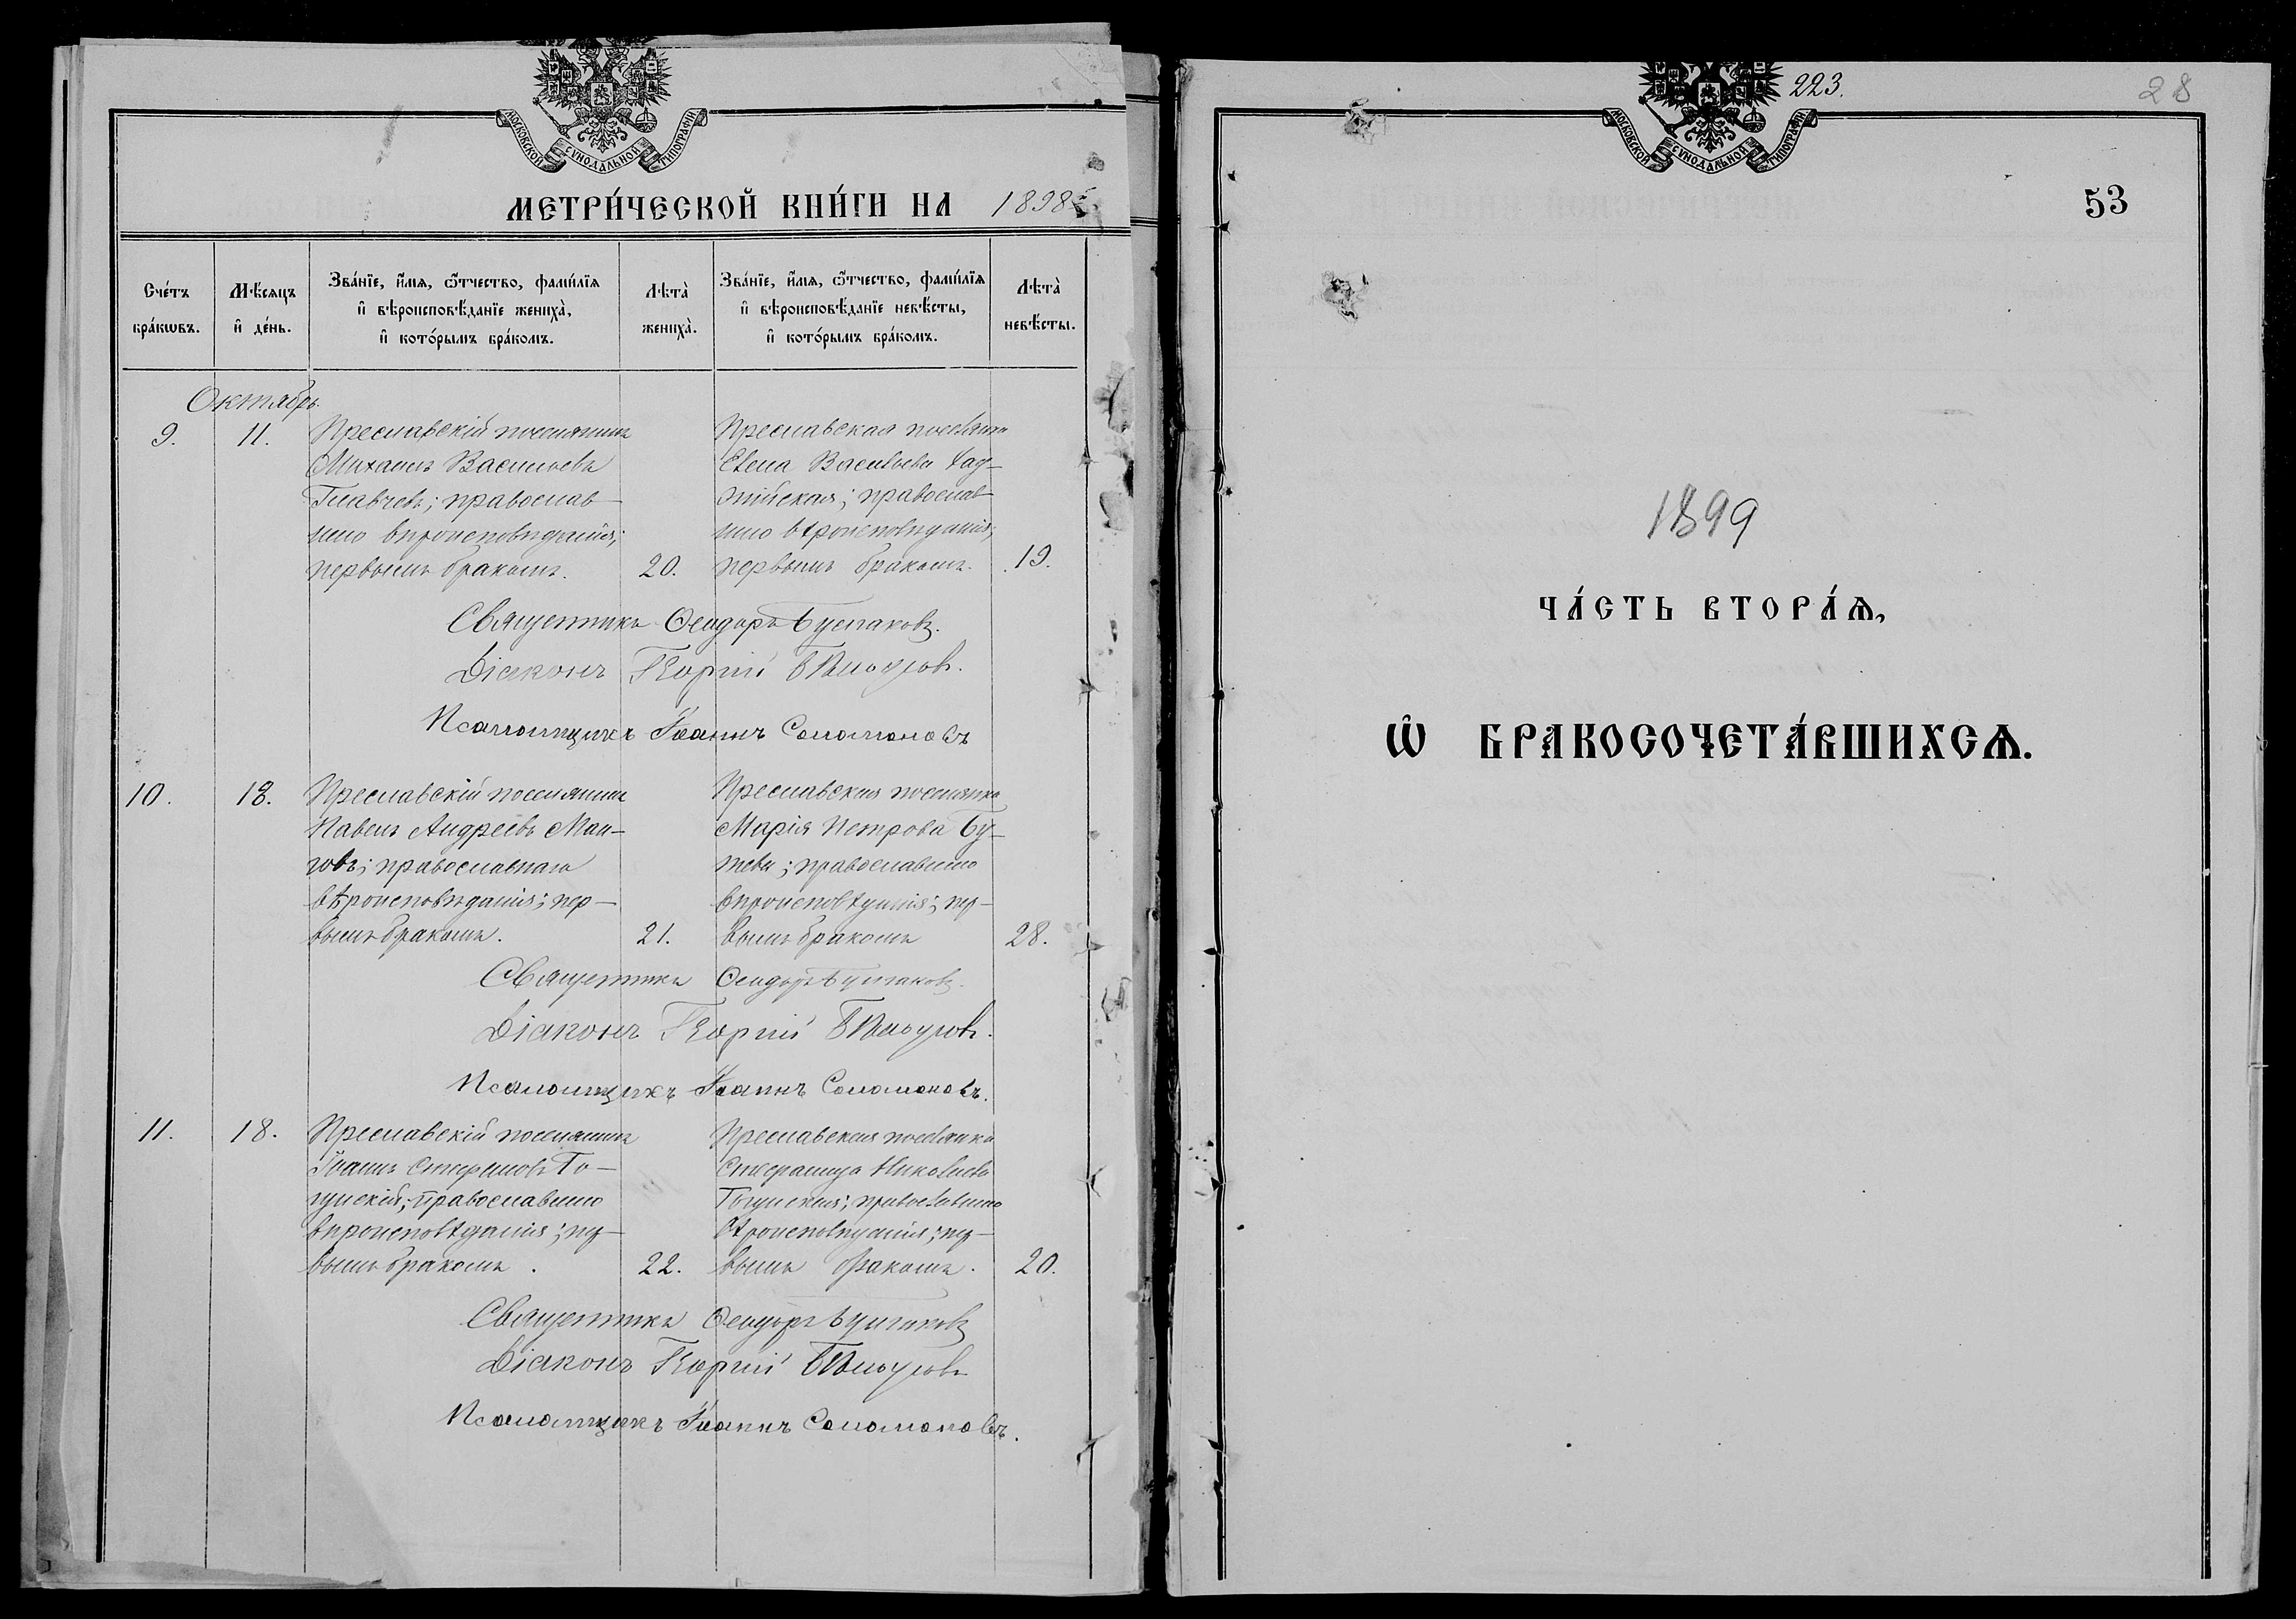 МОСКОВСКОЙ СѴНОДАЛЬНОЙ ТИПОГРАФІИ
МЕТРИ́ЧЕСКОЙ КНИ́ГИ НА 1898
Сче́тъ бра́кѡвъ.
Мѣ́сяцъ и҆ де́нь.
Зва́нїе, и҆́мѧ, ѻ҆́тчество, фами́лїѧ
и҆ вѣроисповѣ́данїе жениха̀,
и҆ кото́рымъ бра́комъ.
Лѣта̀ жениха̀.
Зва́нїе, и҆́мѧ, ѻ҆́тчество, фами́лїѧ
и҆ вѣроисповѣ́данїе невѣ́сты,
и҆ кото́рымъ бра́комъ.
Лѣта̀ невѣ́сты.
Октябрь.
9. 11.
Преславскій поселянинъ
Михаилъ Васильевъ
Главчевъ; православ–
наго вѣроисповѣданія;
первымъ бракомъ. 20.
Преславская поселянка
Елена Васильева
православ–
наго вѣроисповѣданія;
первымъ бракомъ. 19.
Священникъ Ѳеодоръ Булгаковъ.
Діаконъ Георгій
Псаломщикъ Іоаннъ Соломоновъ
10. 18.
Преславскій поселянинъ
Павелъ Андреевъ Ман–
говъ; православнаго
вѣроисповѣданія; пер–
вымъ бракомъ. 21.
Преславская поселянка
Марія Петрова Бу–
жева; православнаго
вѣроисповѣданія; пер–
вымъ бракомъ 28.
Священникъ Ѳеодоръ Булгаковъ.
Діаконъ Георгій
Псаломщикъ Іоаннъ Соломоновъ.
11. 18.
Преславскій поселянинъ
Іоаннъ Стефановъ
православнаго
вѣроисповѣданія; пер–
вымъ бракомъ. 22.
Преславская поселянка
Стефанида Николаева
православнаго
вѣроисповѣданія; пер–
вымъ бракомъ. 20.
Священникъ Ѳеодоръ Булгаковъ
Діаконъ Георгій
Псаломщикъ Іоаннъ Соломоновъ.
223.
28
МОСКОВСКОЙ СѴНОДАЛЬНОЙ ТИПОГРАФІИ
53
1899
ЧА́СТЬ ВТОРА́Ѧ,
Ѡ҆ БРАКОСОЧЕТА́ВШИХСѦ.